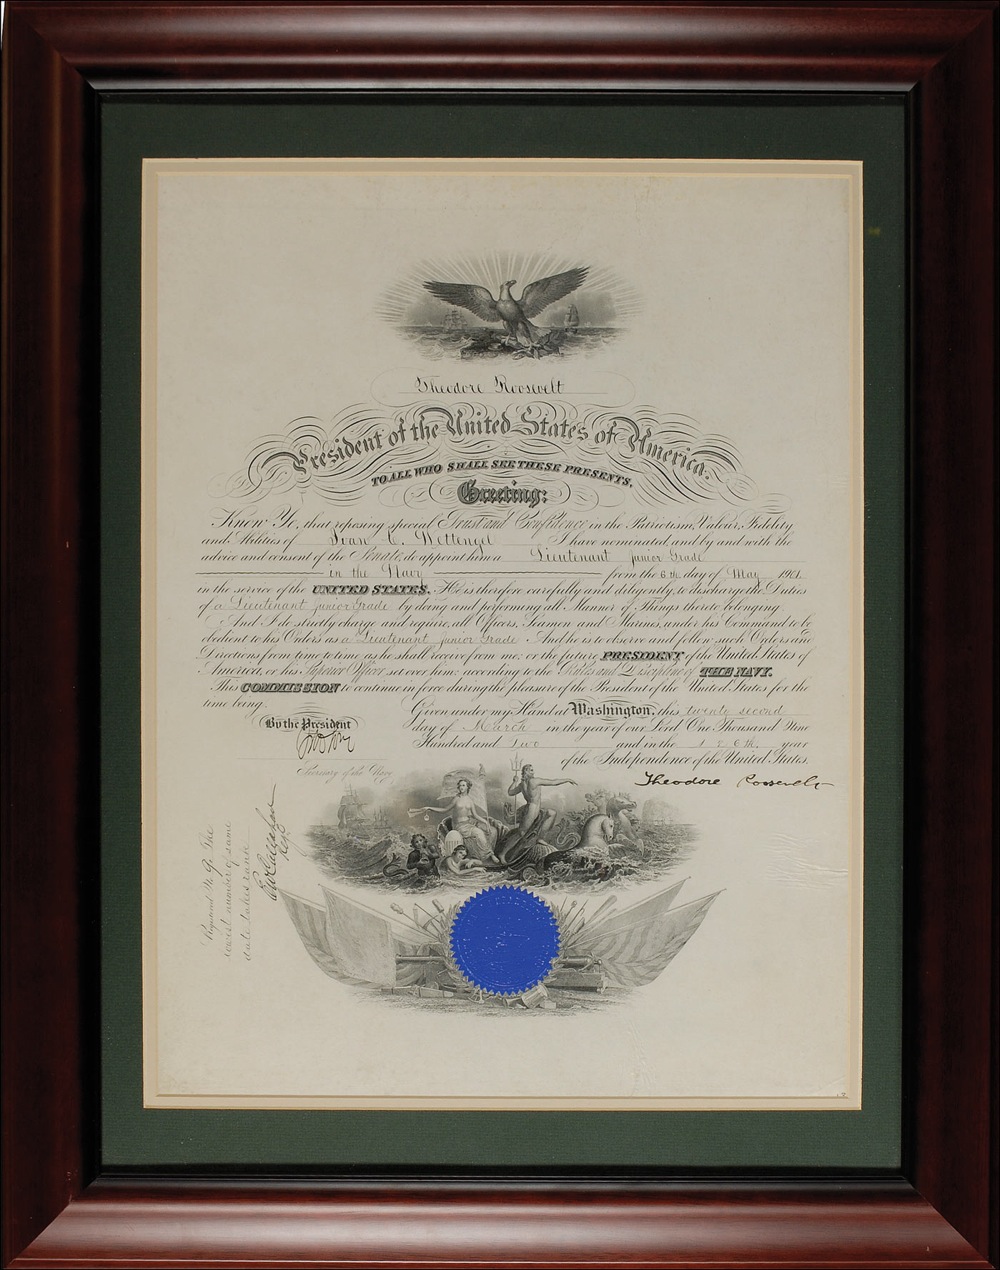 Theodore Roosevelt
President of the United States of America.
TO ALL WHO SHALL SEE THESE PRESENTS,
Greeting:
Know Ye, that reposing special Trust and Confidence in the Patriotism, Valour, Fidelity
and Abilities of Ivan C. Wettengel I have nominated, and by and with the
advice and consent of the Senate, do appoint him a Lieutenant junior Grade
in the Navy from the 6th day of May 1901
in the service of the UNITED STATES. He is therefore carefully and diligently to discharge the Duties
of a Lieutenant junior Grade by doing and performing all Manner of Things thereto belonging.
And I do strictly charge and require all Officers, Seamen and Marines, under his Command to be
obedient to his Orders as a Lieutenant junior Grade And he is to observe and follow such Orders and
Directions from time to time as he shall receive from me, or the future PRESIDENT of the United States of
America, or his Superior Officer set over him, according to the Rules and Discipline of THE NAVY.
This COMMISSION to continue in force during the pleasure of the President of the United States for the
time being.
Given under my Hand at Washington, this twenty second
day of March in the year of our Lord One Thousand Nine
Hundred and Two and in the 126th. year
of the Independence of the United States.
By the President
Secretary of the Navy
Theodore Roosevelt
The
lowest number of same
date takes rank